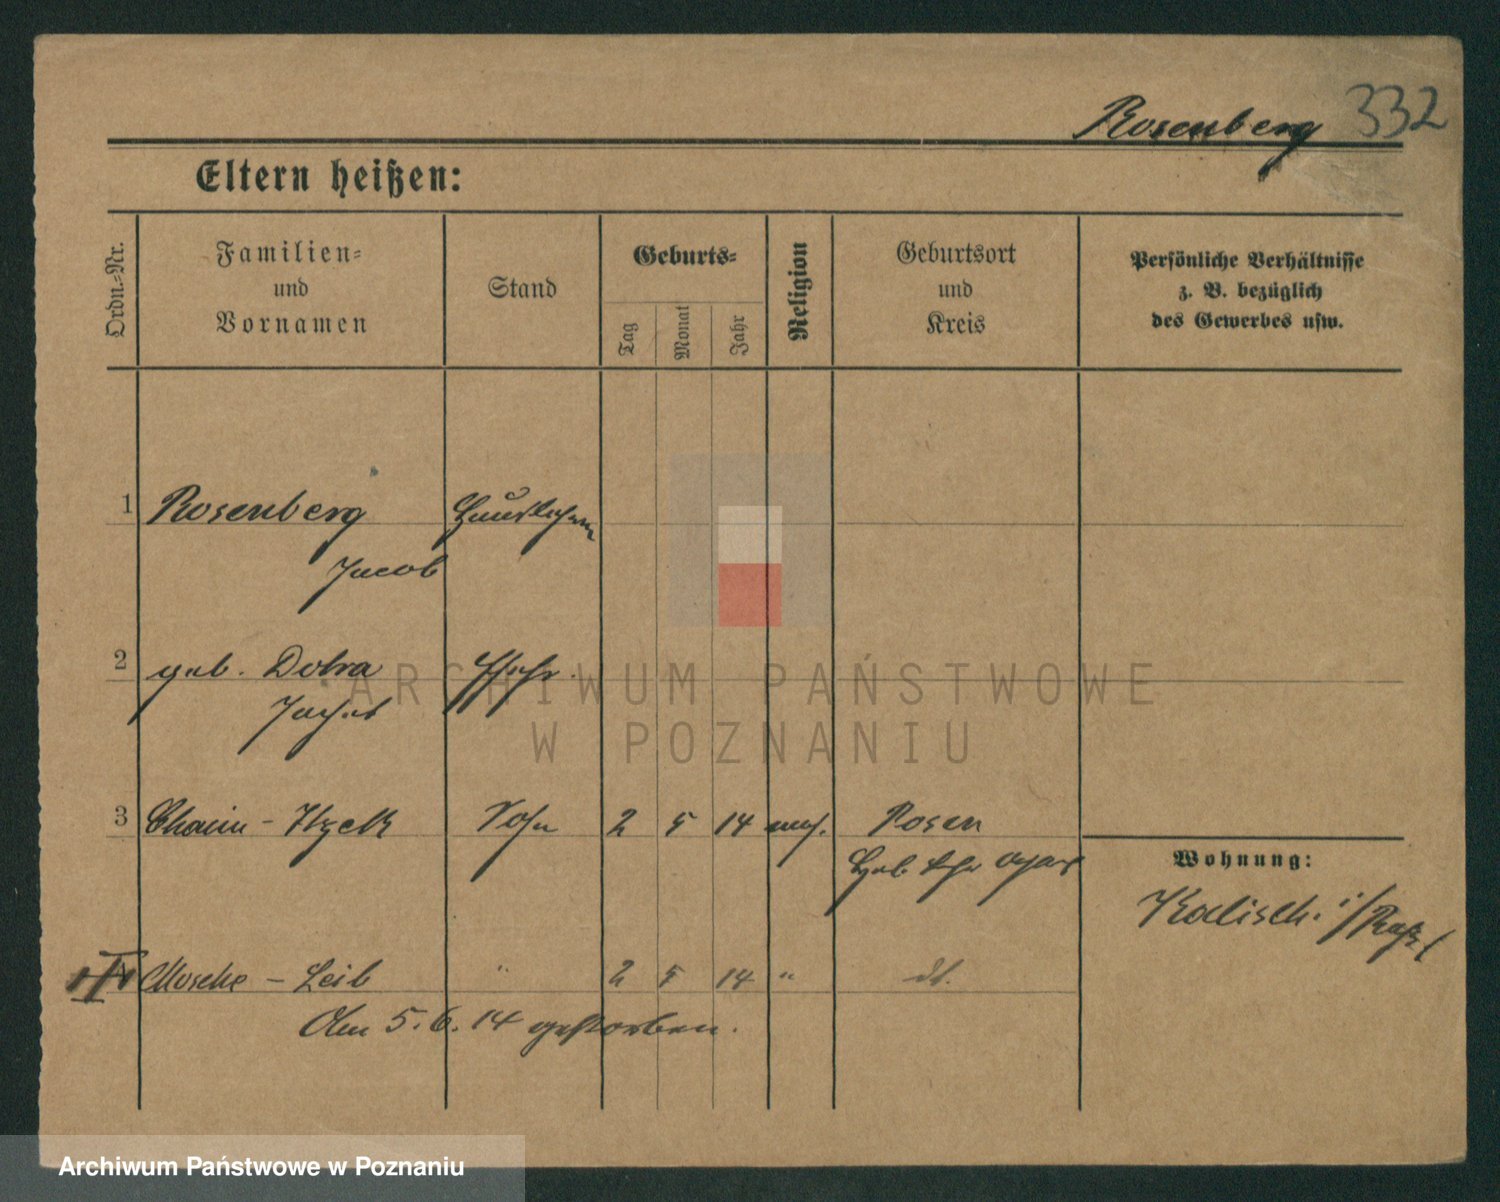 Rosenberg 332
Eltern heißen:
Ordn.-Nr.
Familien- und Vornamen
Stand
Geburts-
Tag
Monat
Jahr
Religion
Geburtsort und Kreis
Persönliche Verhältnisse z. B. bezüglich des Gewerbes usw.
1 Rosenberg
Jacob
2 geb. Dobra
3 Chaim - Itzek Sohn 2 5 14 mos. Posen
Wohnung:
Kalisch i/
4 Mosche - Leib " 2 5 14 " dt.
Am 5.6.14 gestorben.
ARCHIWUM PAŃSTWOWE
W POZNANIU
Archiwum Państwowe w Poznaniu